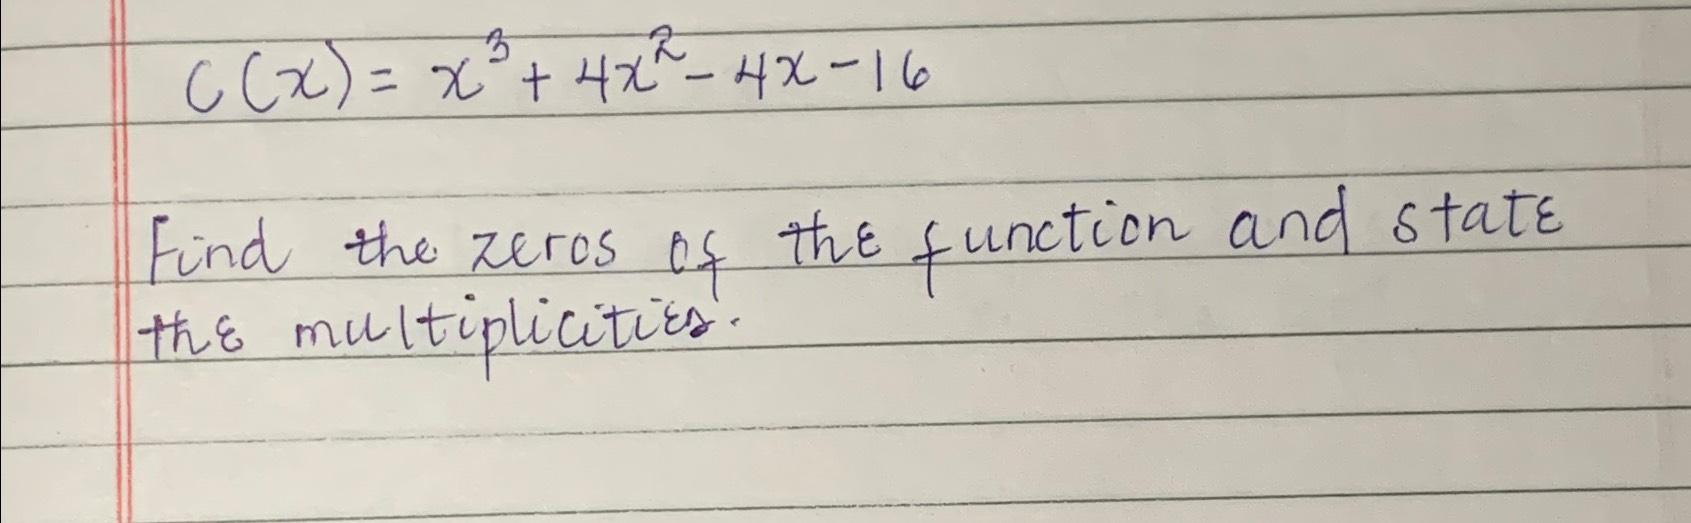 C(x) = x³ + 4x² - 4x - 16
Find the zeros of the function and state
the multiplicities.